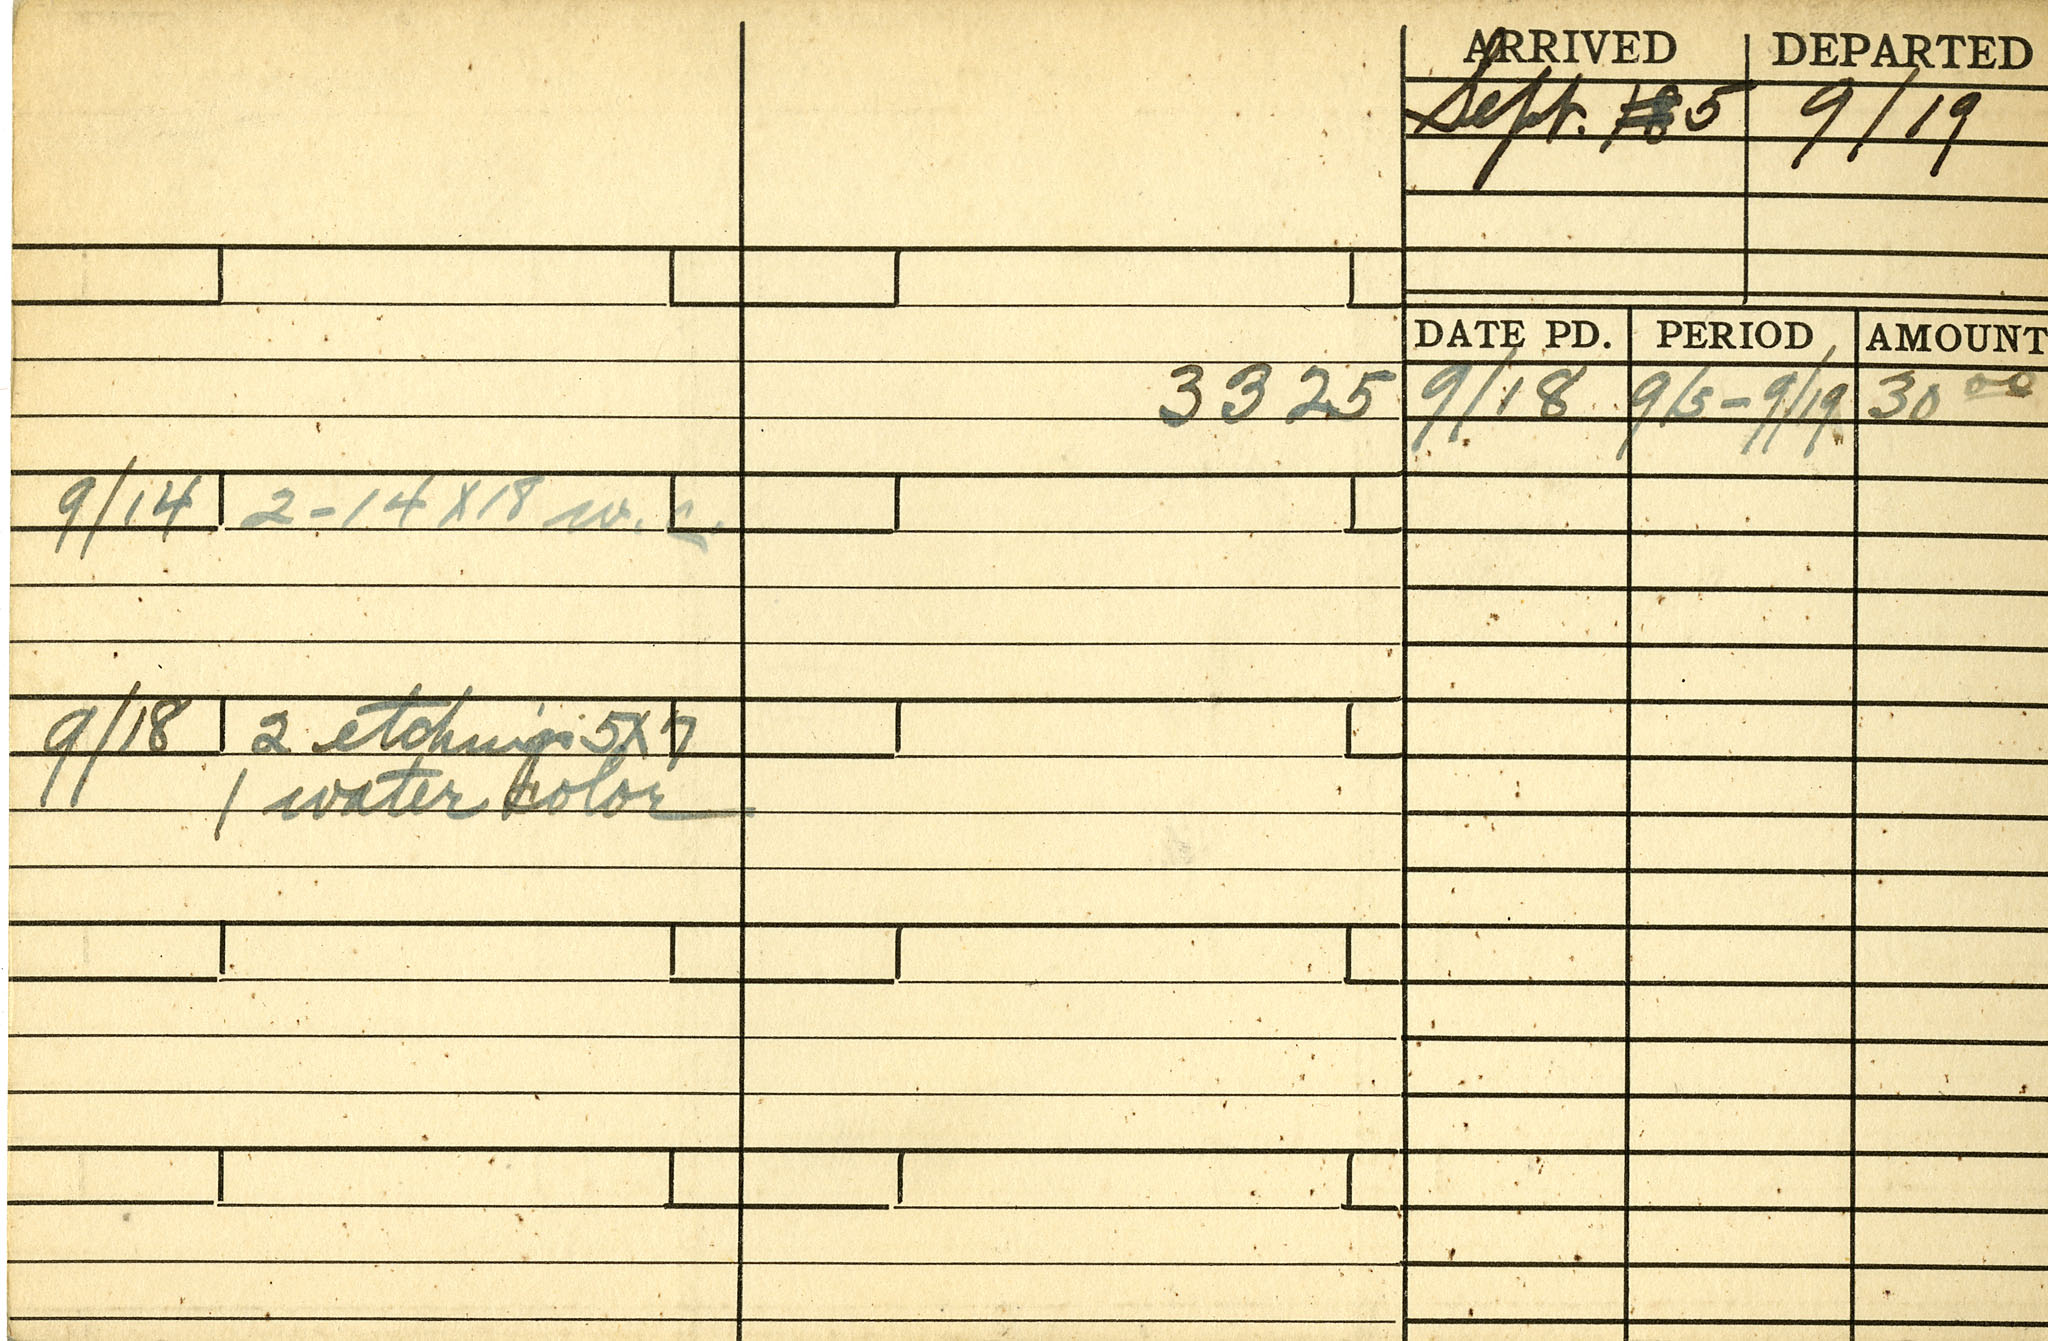 ARRIVED DEPARTED
Sept. 5 9/19
DATE PD. PERIOD AMOUNT
3325 9/18 9/5-9/19 30 00
9/14 2-14 X 18 w.c.
9/18 2 etchings 5X7
1 water color